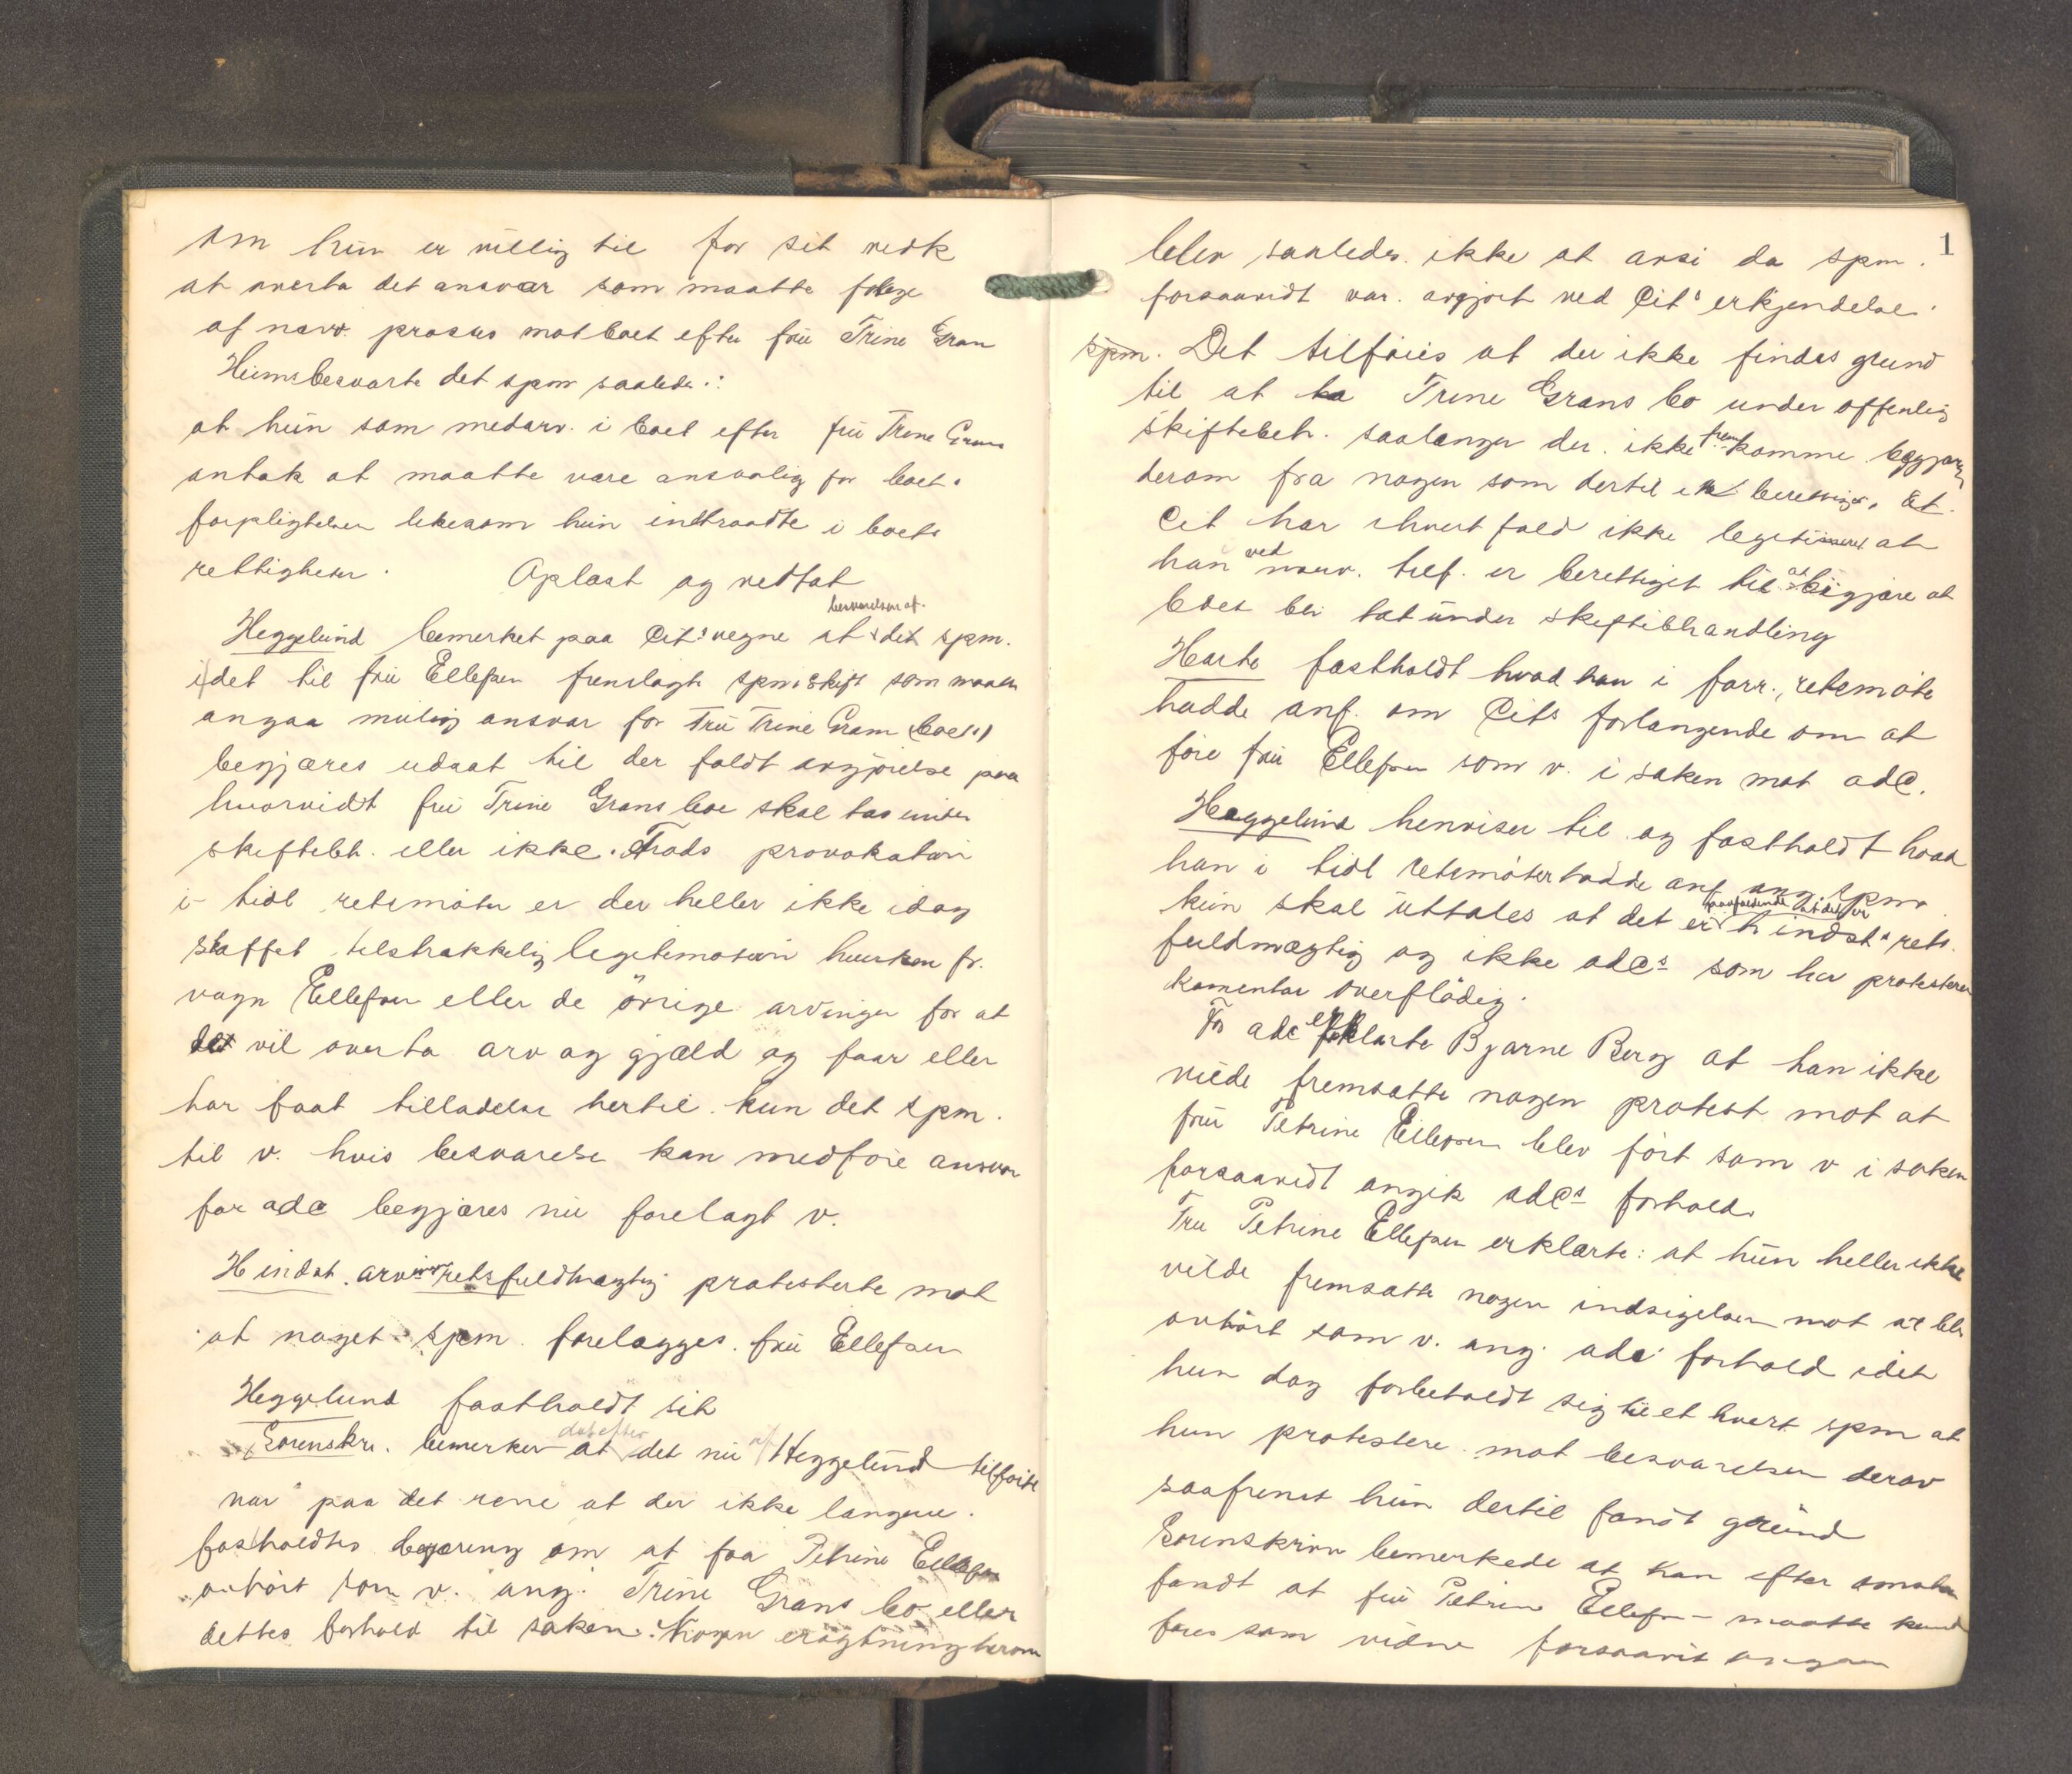 om hun er villig til for sit vedk
at overta det ansvar som maatte følge
af nærv. proses mot boet efter fru Trine Gran
Hun besvarte det spm saaledes:
at hun som medarv. i boet efter fru Trine Grans
antok at maatte være ansvarlig for boets
forpligtelser likesom hun indtraadte i boets
rettigheter. Oplæst og vedtat
Heggelund bemerket paa Cit's vegne at besvarelsen af det spm.
i det til fru Ellefsen fremlagte spm.skrift som maatte
angaa mulig ansvar for Fru Trine Gram boe
begjæres udsat til der faldt avgjörelse paa
hvorvidt fru Trine Grans boe skal tas under
skiftebh. eller ikke. Trods provokation
i tidl retsmöter er der heller ikke idag
skaffet tilstrækkelig legitimation hverken fr.
vegn Ellefsen eller de övrige arvinger for at
de vil overta arv og gjæld og faar eller
har faat tilladelse hertil. Kun det spm.
til v. hvis besvarelse kan medföre ansvar
for adc begjæres nu forelagt v.
H indst. arvinger retsfuldmægtig protesterte mot
at noget spm. forelægges fru Ellefsen
Heggelund fastholdt sit
Sorenskr. bemerker at det efter det nu af Heggelund tilförte
var paa det rene at der ikke længere
fastholdtes begjæring om at faa Petrine Ellefsen
avhört som v. ang. Trine Grans bo eller
dettes forhold til saken. Nogen erögtning herom
1
blev saaledes ikke at avsi da spm.
forsaavidt var avgjort ved Cit's erkjendelse.
spm. Det tilföies at der ikke findes grund
til at ta Trine Grans bo under offentlig
skiftebeh. saalænge der ikke fremkomme begjæring
derom fra nogen som dertil er berettiget. At
Cit har ihvert fald ikke legitimeret at
han ved nærv. telf. er berettiget til at begjære at
boet blir tat under skiftebehandling
Harto fastholdt hvad han i forr. retsmöte
hadde anf. om Cits forlangende om at
före fru Ellefsen som v. i saken mot adC.
Heggelund henviser til og fastholdt hvad
han i tidl retsmöter hadde anf. ang. spm
kun skal uttales at det er paafaldende at det er H indst's rets
fuldmægtig og ikke adC's som her protesterer
Komentar overflödig.
For adc erklærte Bjarne Berg at han ikke
vilde fremsætte nogen protest mot at
fru Petrine Ellefsen blev fört som v i saken
forsaavidt angik adC's forhold.
Fru Petrine Ellefsen erklærte: at hun heller ikke
vilde fremsætte nogen indsigelser mot at bli
avhört som v. ang. adc forhold idet
hun dog forbeholdt sig til et hvert spm at
hun protestere mot besvarelsen derav
saafremt hun dertil fandt grund
Sorenskriv bemerkede at han efter
fandt at fru Petrine Ellefsen maatte kunde
föres som vidne forsaavit angaar